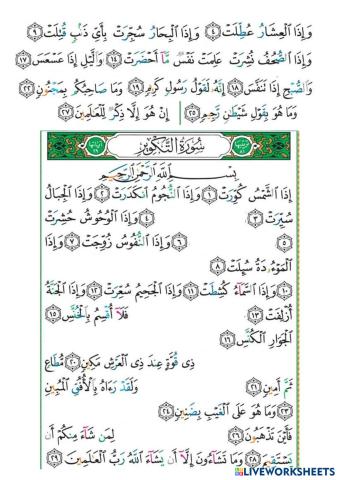 وَإِذَا ٱلۡعِشَارُ عُطِّلَتۡ ٤ وَإِذَا ٱلۡبِحَارُ سُجِّرَتۡ بِأَيِّ ذَنۢبٖ قُتِلَتۡ ٩
وَإِذَا ٱلصُّحُفُ نُشِرَتۡ عَلِمَتۡ نَفۡسٞ مَّآ أَحۡضَرَتۡ ١٤ وَٱلَّيۡلِ إِذَا عَسۡعَسَ ١٧
وَٱلصُّبۡحِ إِذَا تَنَفَّسَ ١٨ إِنَّهُۥ لَقَوۡلُ رَسُولٖ كَرِيمٖ ١٩ وَمَا صَاحِبُكُم بِمَجۡنُونٖ ٢٢
وَمَا هُوَ بِقَوۡلِ شَيۡطَٰنٖ رَّجِيمٖ ٢٥ إِنۡ هُوَ إِلَّا ذِكۡرٞ لِّلۡعَٰلَمِينَ ٢٧
سُورَةُ التَّكْوِيرِ
بِسۡمِ ٱللَّهِ ٱلرَّحۡمَٰنِ ٱلرَّحِيمِ
إِذَا ٱلشَّمۡسُ كُوِّرَتۡ ١ وَإِذَا ٱلنُّجُومُ ٱنكَدَرَتۡ ٢ وَإِذَا ٱلۡجِبَالُ
سُيِّرَتۡ ٣ ٤ وَإِذَا ٱلۡوُحُوشُ حُشِرَتۡ
٥ ٦ وَإِذَا ٱلنُّفُوسُ زُوِّجَتۡ ٧ وَإِذَا
ٱلۡمَوۡءُۥدَةُ سُئِلَتۡ ٨
١٠ وَإِذَا ٱلسَّمَآءُ كُشِطَتۡ ١١ وَإِذَا ٱلۡجَحِيمُ سُعِّرَتۡ ١٢ وَإِذَا ٱلۡجَنَّةُ
أُزۡلِفَتۡ ١٣ فَلَآ أُقۡسِمُ بِٱلۡخُنَّسِ ١٥
ٱلۡجَوَارِ ٱلۡكُنَّسِ ١٦
ذِي قُوَّةٍ عِندَ ذِي ٱلۡعَرۡشِ مَكِينٖ ٢٠ مُّطَاعٖ
ثَمَّ أَمِينٖ ٢١ وَلَقَدۡ رَءَاهُ بِٱلۡأُفُقِ ٱلۡمُبِينِ
٢٣ وَمَا هُوَ عَلَى ٱلۡغَيۡبِ بِضَنِينٖ ٢٤
فَأَيۡنَ تَذۡهَبُونَ ٢٦ لِمَن شَآءَ مِنكُمۡ أَن
يَسۡتَقِيمَ ٢٨ وَمَا تَشَآءُونَ إِلَّآ أَن يَشَآءَ ٱللَّهُ رَبُّ ٱلۡعَٰلَمِينَ ٢٩
LIVEWORKSHEETS